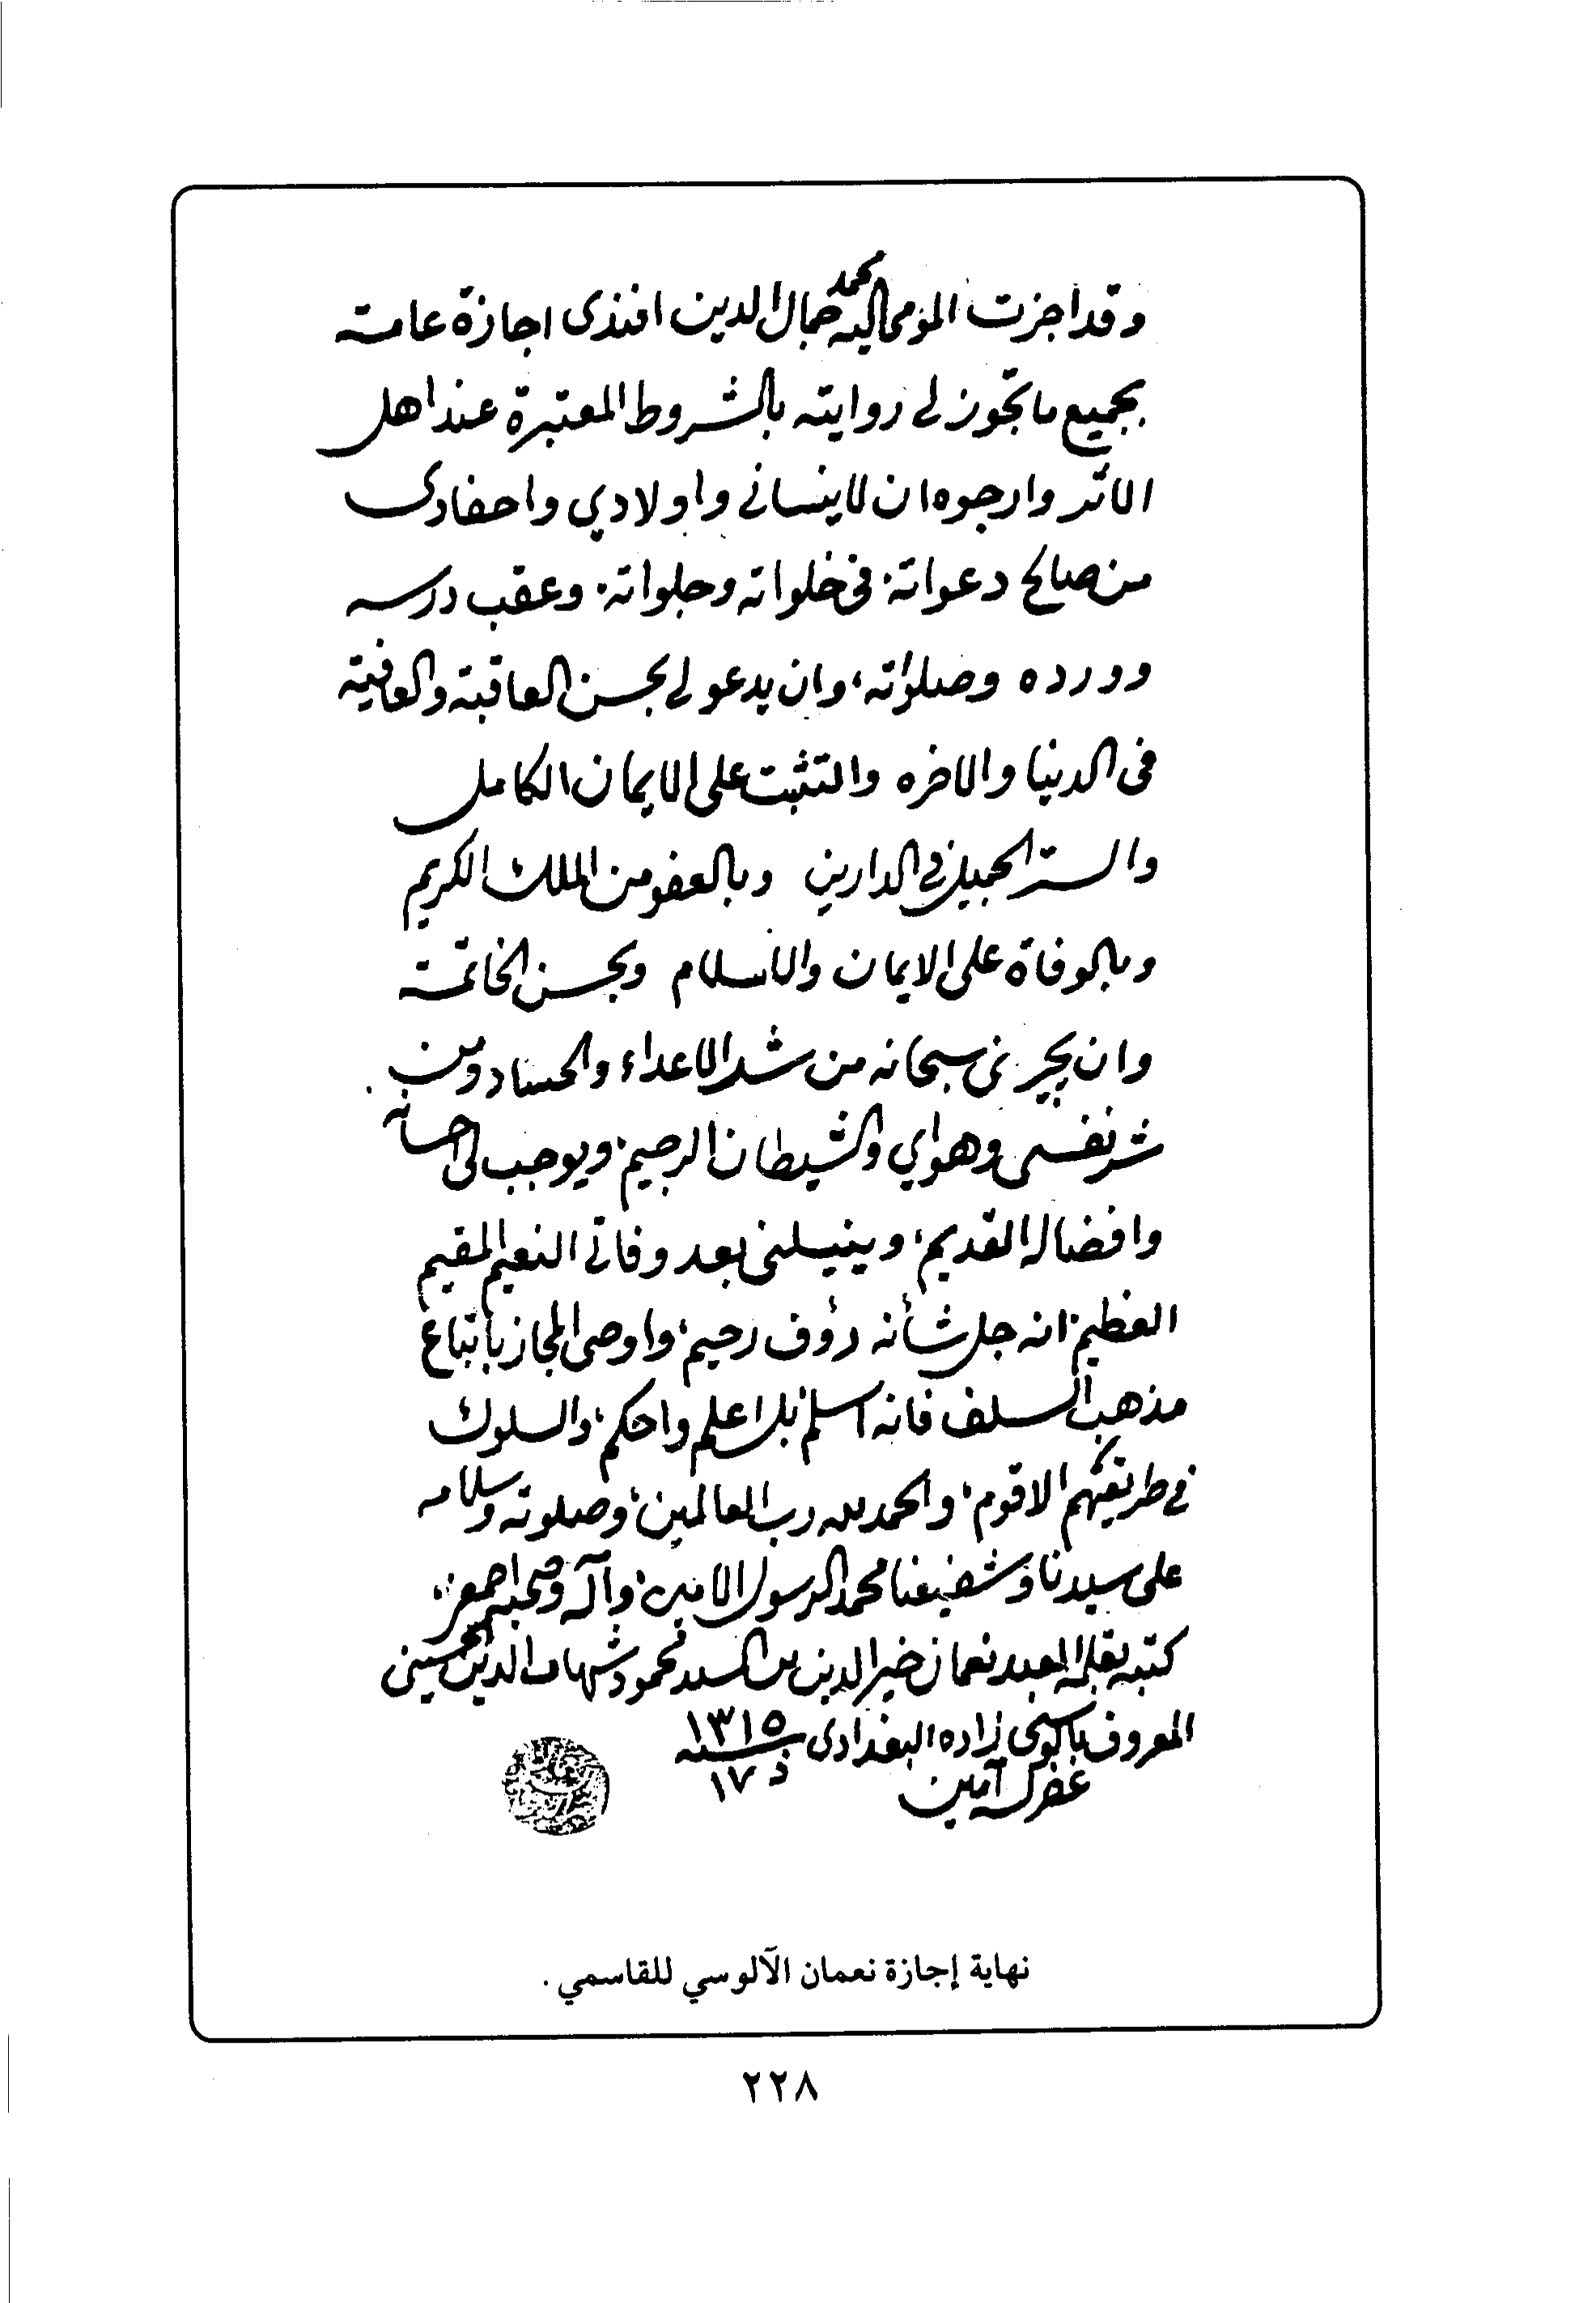 وقد اجزت المومى اليه محمد جمال الدين افندى اجازة عامة
بجميع ما تجوز لي روايته بالشروط المعتبرة عند اهل
الاثر وارجوه ان لا ينساني واولادي واحفادى
من صالح دعواته، في خلواته وجلواته، وعقب درسه
وورده وصلواته، وان يدعو لي بحسن العاقبة والعافية
فى الدنيا والاخره والتثبت على الايمان الكامل
والستر الجميل في الدارين وبالعفو من الملك الكريم
وبالوفاة على الايمان والاسلام وبحسن الخاتمة
وان يجيرنى سبحانه من شر الاعداء والحساد ومن
شر نفسى وهواي والشيطان الرجيم، ويوجب لى احسانه
وافضاله القديم، وينيلنى بعد وفاتي النعيم المقيم
العظيم، انه جل شأنه رؤف رحيم، واوصى المجاز باتباع
مذهب السلف فانه اسلم بل اعلم واحكم، والسلوك
في طريقتهم الاقوم، والحمد لله رب العالمين، وصلوته وسلامه
على سيدنا وشفيعنا محمد الرسول الامين، وآله وصحبه اجمعين،
كتبه بقلمه العبد نعمان خير الدين بن السيد محمود شهاب الدين الحسينى
المعروف بالوسى زاده البغدادى سنة ١٣١٥
غفر له آمين ١٧ ذ
نهاية إجازة نعمان الآلوسي للقاسمي .
٢٢٨